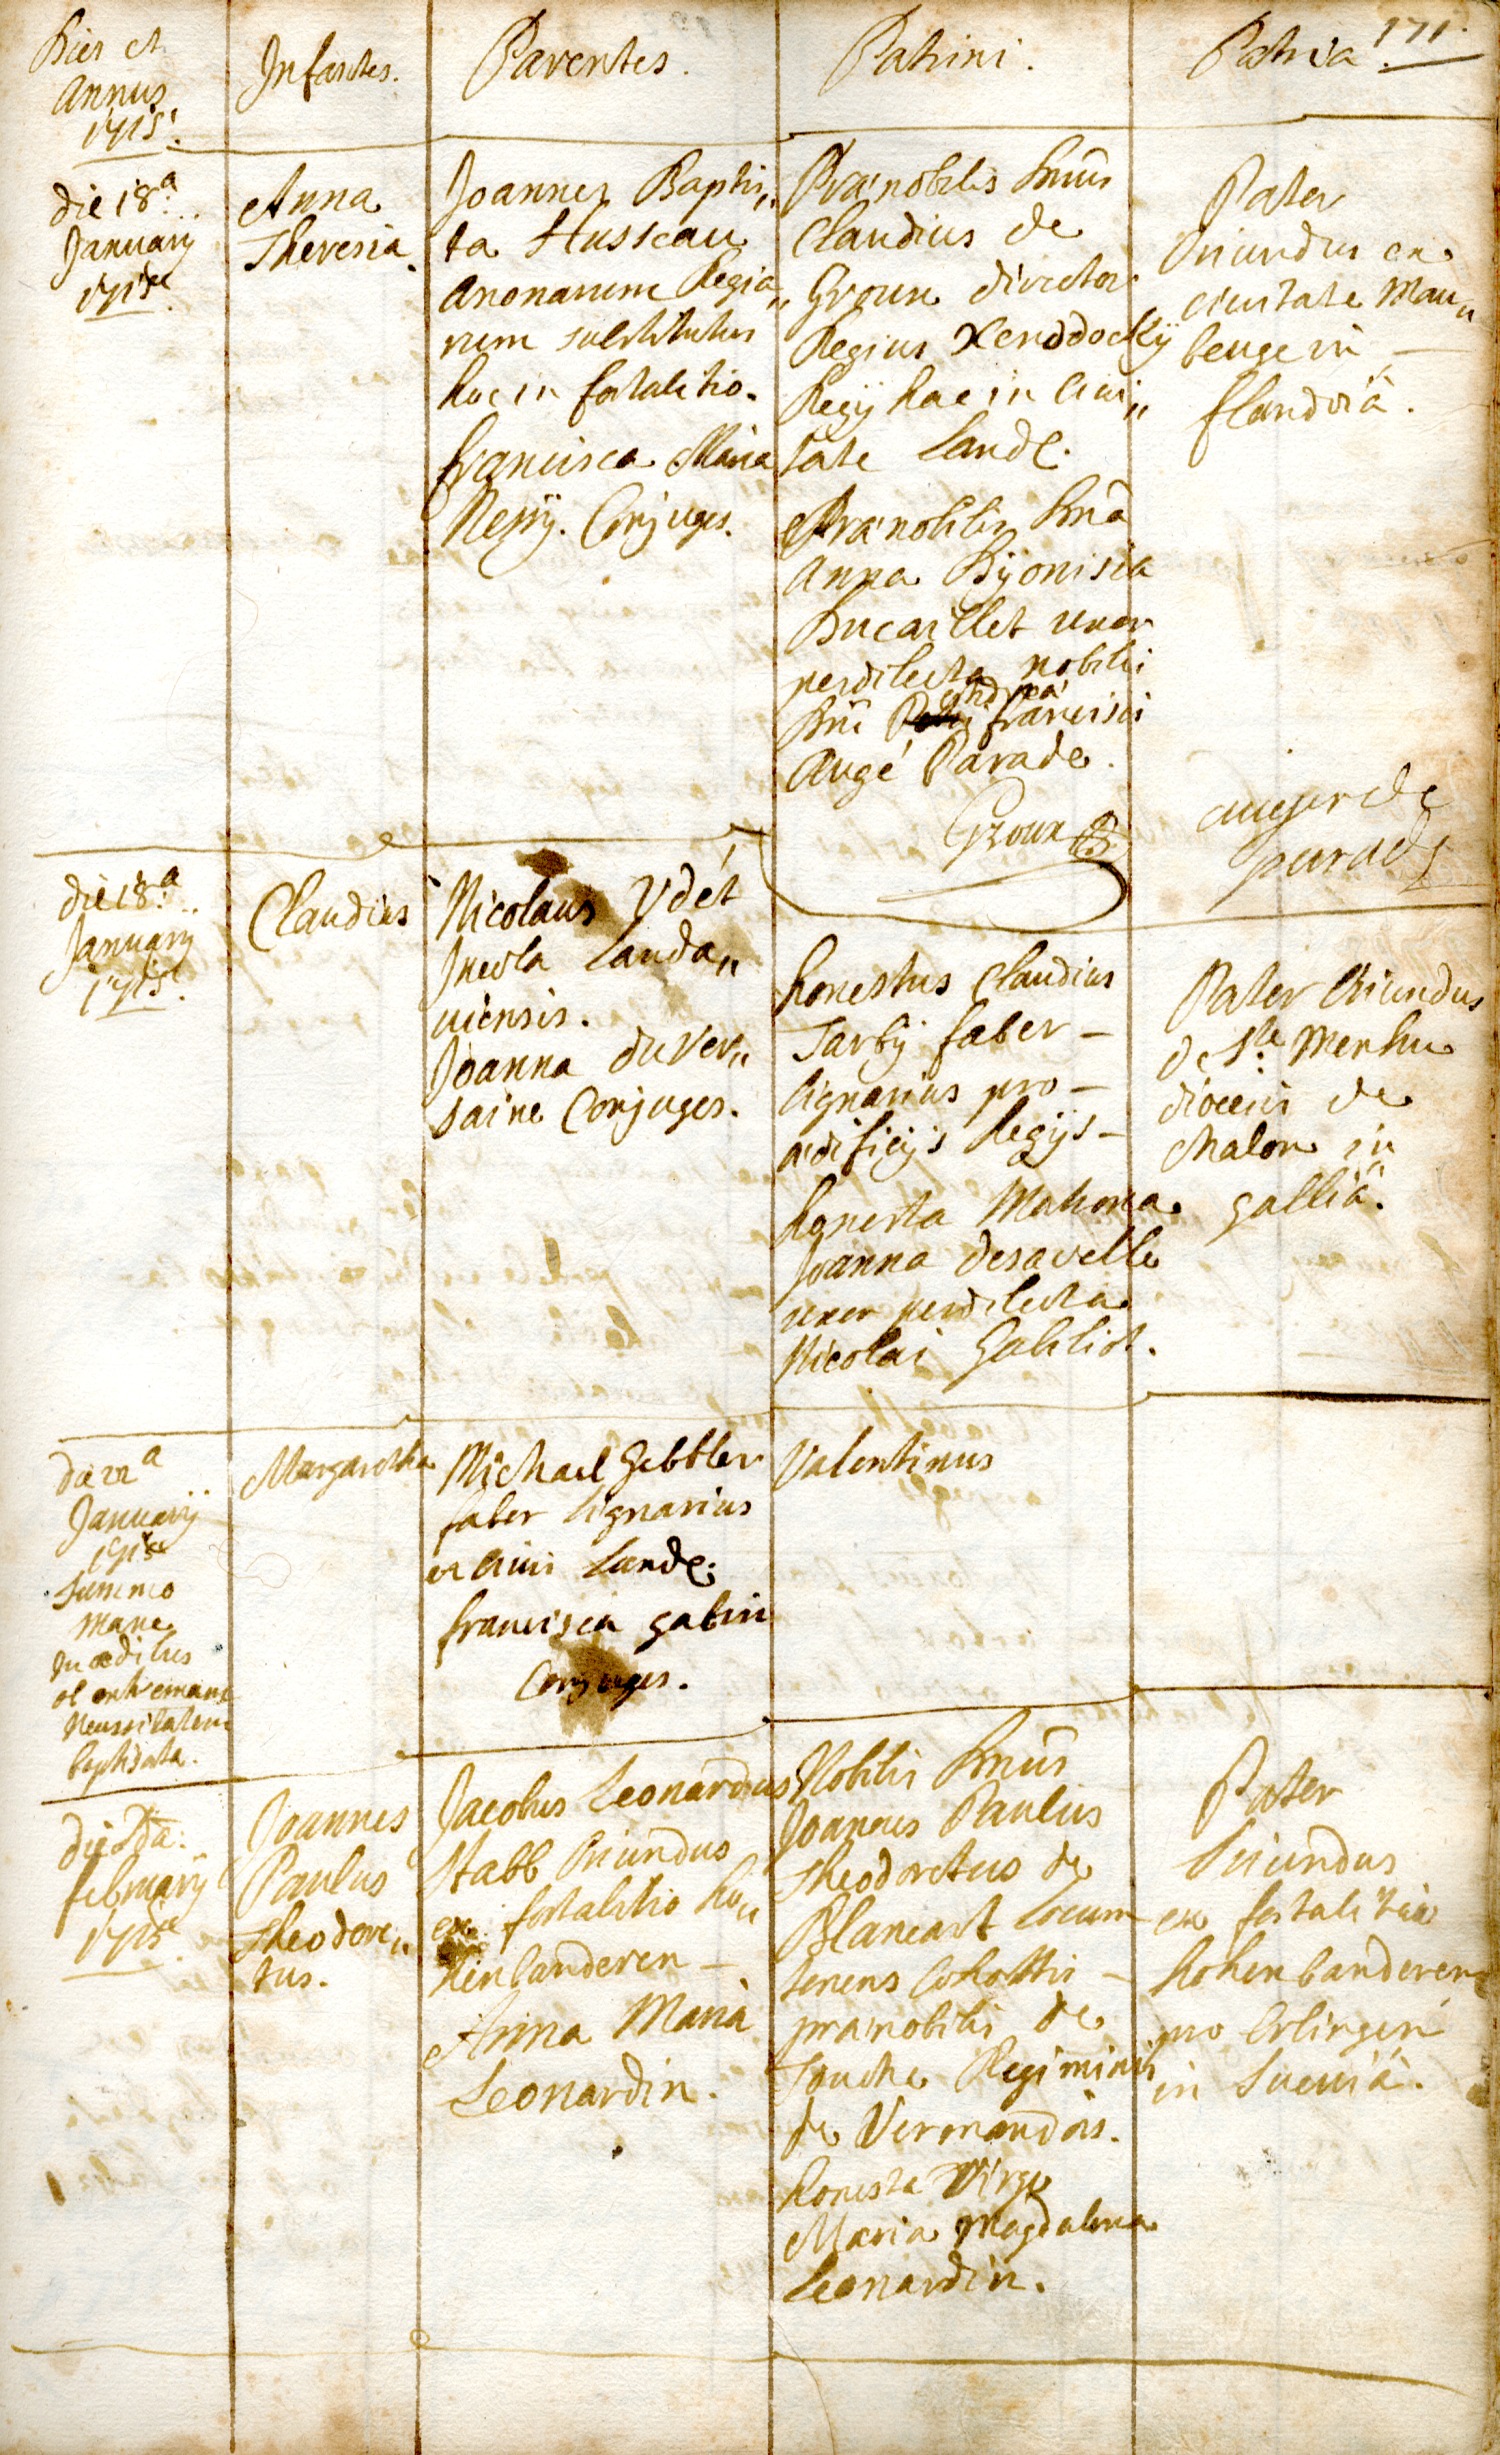 171.
Dies et
Annus
1715.
Infantes.
Parentes.
Patrini.
Patria
die 18.a
January
1715
Anna
Theresia.
Joannes Baptis„
ta Husseau
anonarum Regia„
rum substitutus
hoc in fortalitio.
francisca Maria
Conjuges.
Prænobilis Dnus
Claudius de
Groux director
Regius
Regij hac in Civi„
tate Land.
Prænobilis Dna
Anna Dijonisia
Ducaillet uxor
perdilecta nobilis
Dni francisci
Augé Parade.
Groux
Pater
Oriundus ex
civitate Mau„
beuge in —
flandriâ.
augerde
parade
die 18.a
January
1715.
Claudius
Nicolaus Vdét
Incola Landa„
uiensis.
Joanna du Ver„
saine Conjuges.
honestus Claudius
Tarbij faber —
lignarius pro —
ædificijs Regijs —
honesta Matrona
Joanna desavelle
uxor perdilecta
Nicolai Gabliot.
Pater Oriundus
de Ste Menhu
diocesis de
Chalon in
galliâ.
die 22a
Januarij
1715
summo
mane
in ædibus
ob extremam
Necessitatem
baptizata.
Margaretha
Michael Gebbler
faber lignarius
et Civis Land.
francisca gabrin
Conjuges.
Valentinus
die 2da:
february
1715.
Joannes
Paulus
Theodore„
tus.
Jacobus Leonardus
Stabb Oriundus
ex fortalitio ho„
henlanderen —
Anna Maria
Leonardin.
Nobilis Dnus
Joannes Paulus
Theodoretus de
Blancart Locum
tenens Cohortis —
prænobilis de
Touche Regiminis
de Vermandois.
honesta Virgo
Maria Magdalena
Leonardin.
Pater
Oriundus
ex fortalitio
hohenlanderen
pro
in Sueuiâ.